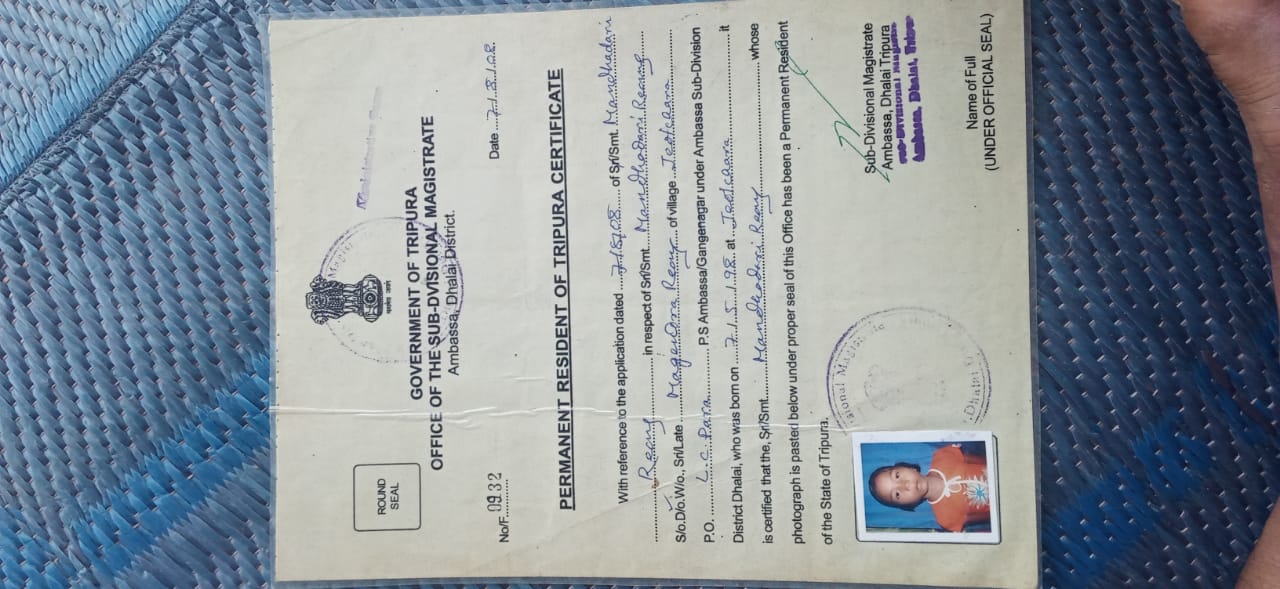 सत्यमेव जयते
GOVERNMENT OF TRIPURA
OFFICE OF THE SUB-DVISIONAL MAGISTRATE
Ambassa, Dhalai District.
ROUND
SEAL
No/F. 0932
Date 7.1.8.1.08
PERMANENT RESIDENT OF TRIPURA CERTIFICATE
With reference to the application dated 7.1.8.1.08 of Sri/Smt. Mandhadari
Reang in respect of Sri/Smt. Mandhodari Reang
S/o.D/o.W/o., Sri/Late Reang of village Jeolchara
P.O. L.C. Para P.S Ambassa/Ganganagar under Ambassa Sub-Division
District Dhalai, who was born on 7.1.5.1.98 at it
is certified that the, Sri/Smt. Mandhodari Reang whose
photograph is pasted below under proper seal of this Office has been a Permanent Resident
of the State of Tripura.
Sub-Divisional Magistrate
Ambassa, Dhalai Tripura
Sub-Divisional Magistrate
Ambassa, Dhalai, Tripura
Name of Full
(UNDER OFFICIAL SEAL)